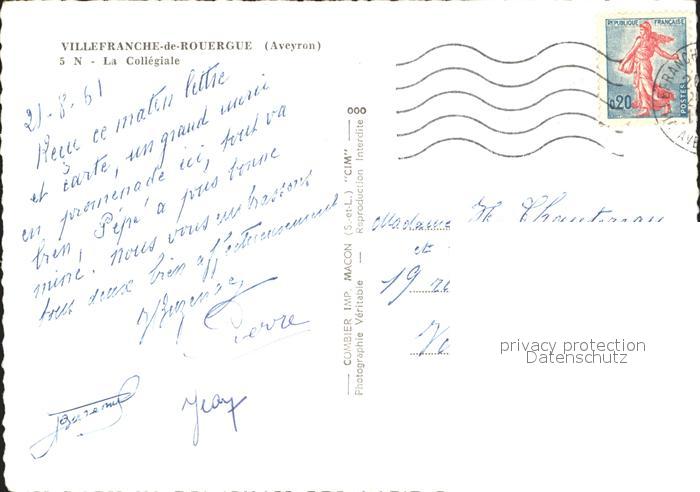 VILLEFRANCHE-de-ROUERGUE (Aveyron)
5 N - La Collégiale
21-8-61
Reçu ce matin lettre
et carte, un grand merci
en promenade ici, tout va
bien, Pépé a plus bonne
mine. Nous vous embrassons
tous deux bien affectueusement
Pierre
Jean
COMBIER IMP. MACON (S.-et-L.) "CIM"
Photographie Véritable — Reproduction Interdite
REPUBLIQUE FRANÇAISE
0,20
POSTES
Madame
et
19
privacy protection
Datenschutz